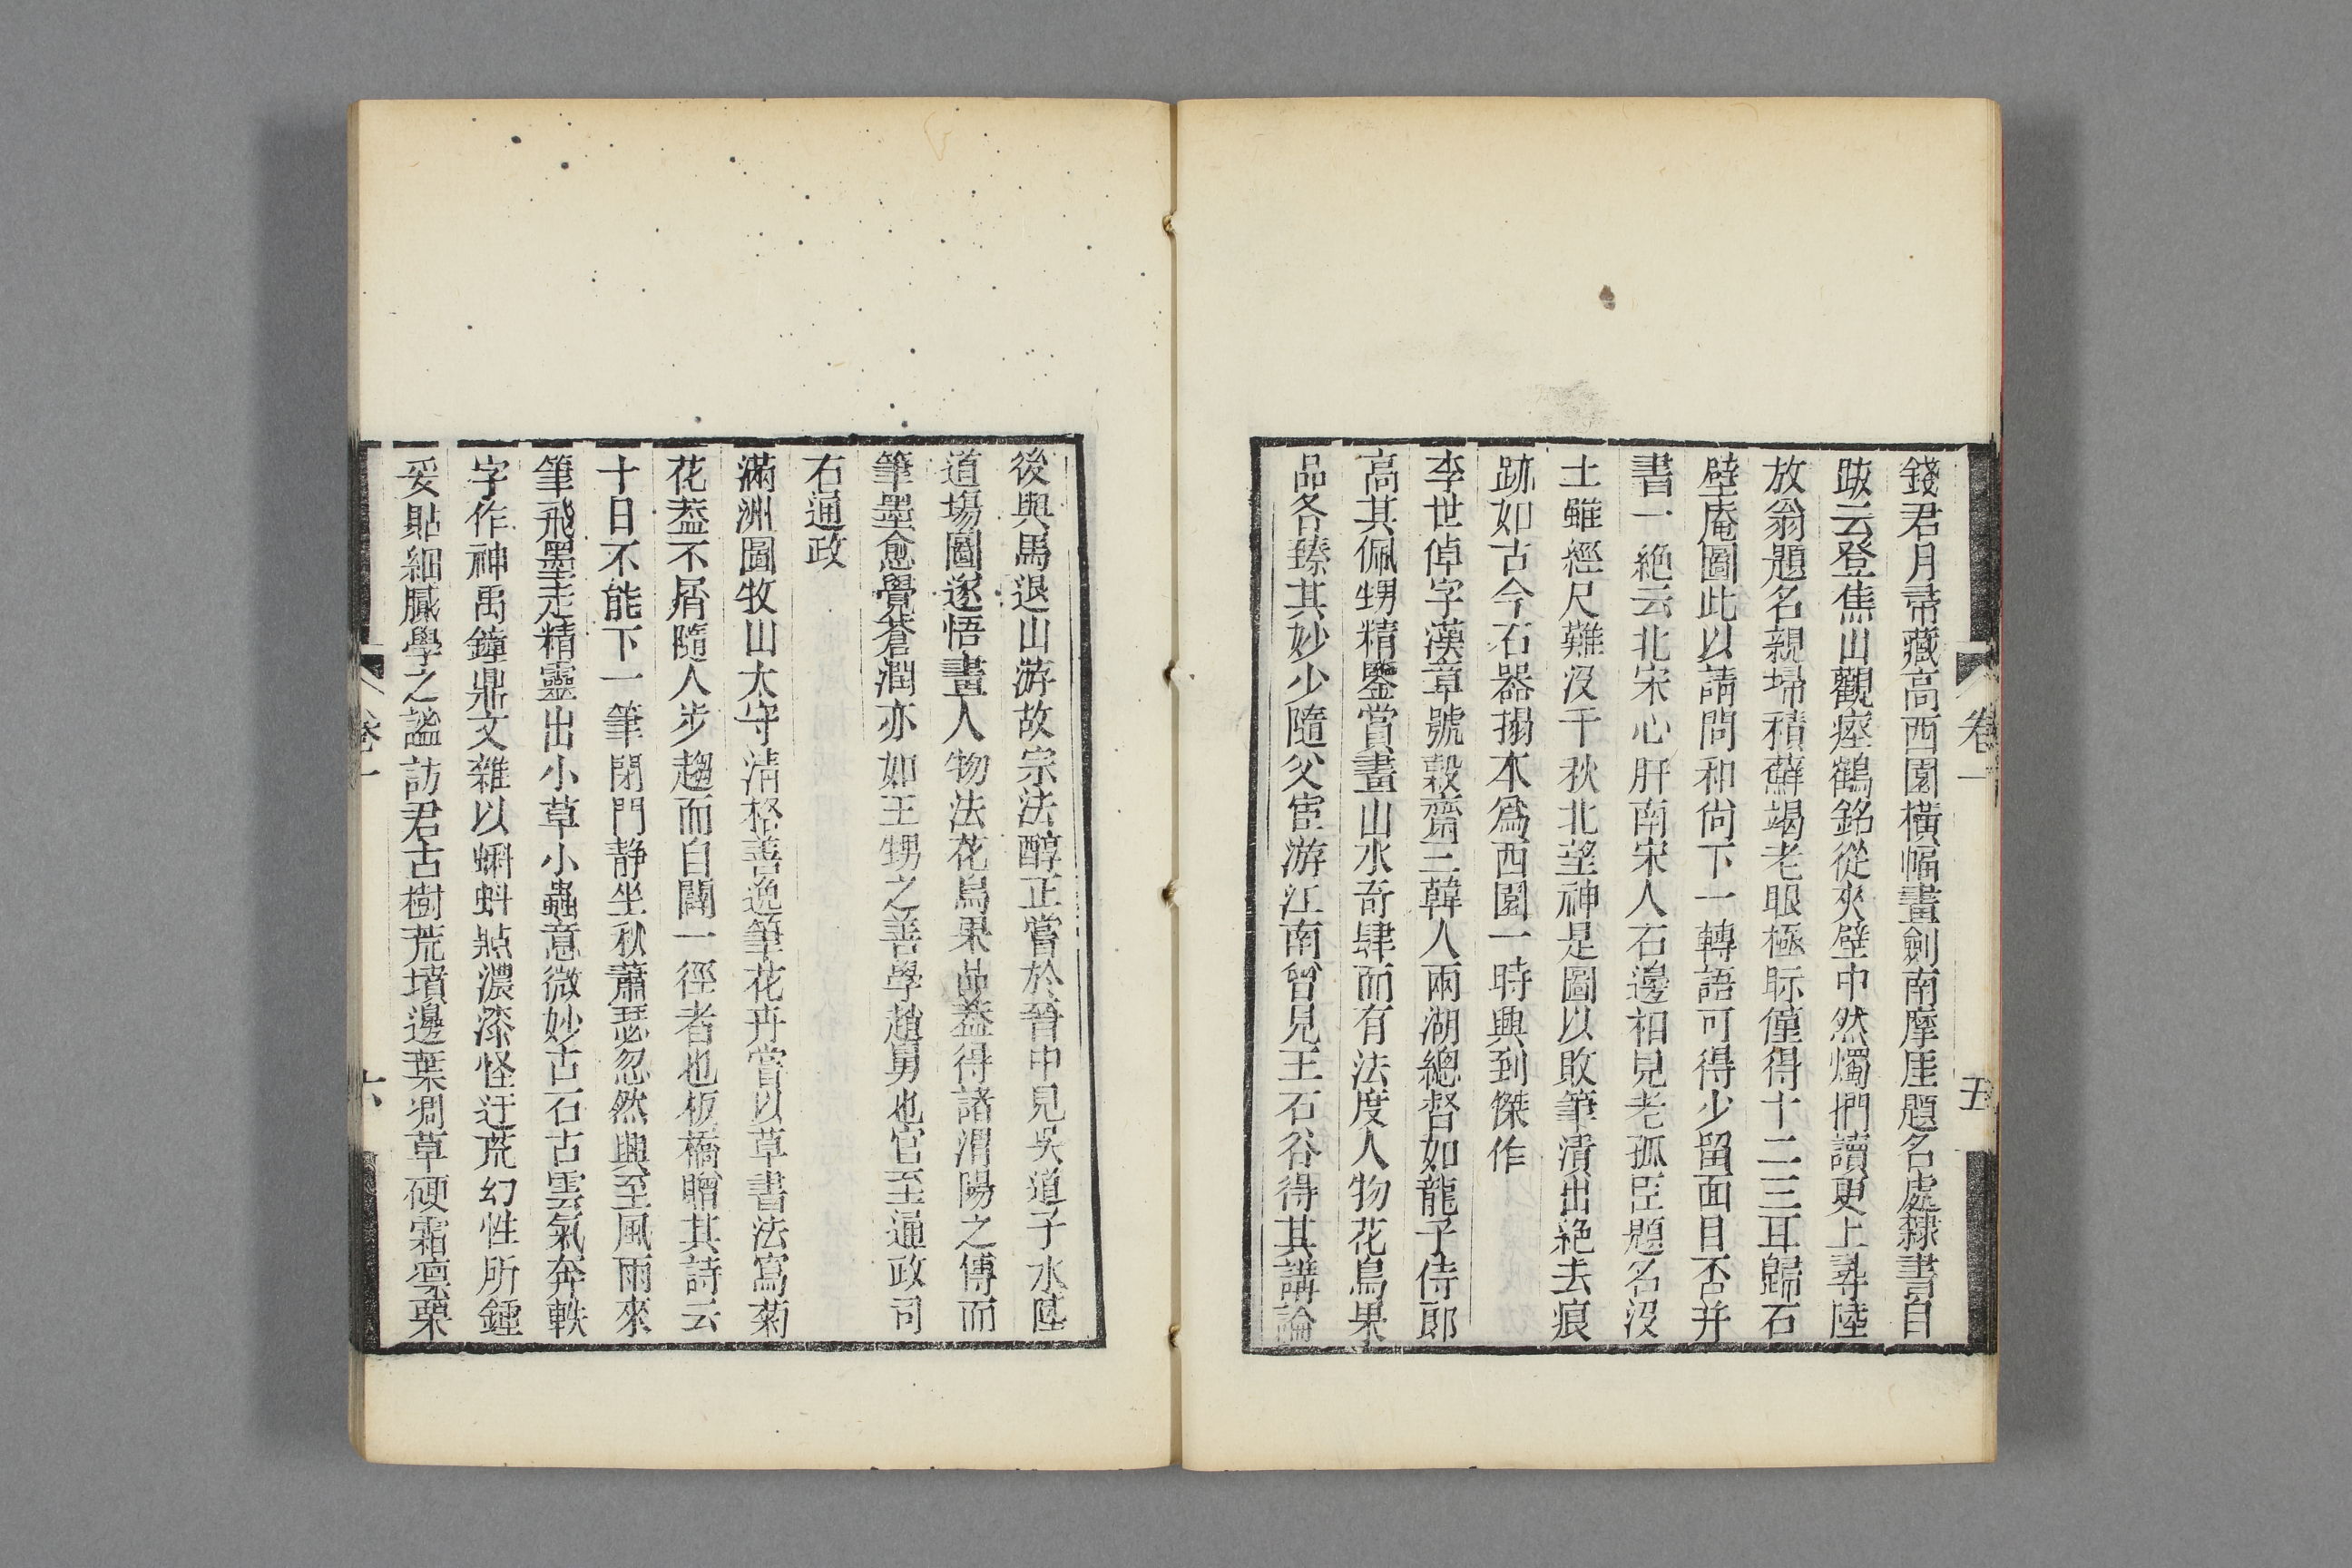 卷一
五
錢君月帚藏高西園橫幅畫劍南摩厓題名處隸書自
跋云登焦山觀瘞鶴銘從夾壁中然燭捫讀更上尋陸
放翁題名親埽積蘚竭老眼極眎僅得十二三耳歸石
壁庵圖此以請問和尙下一轉語可得少畱面目否并
書一絶云北宋心肝南宋人石邊相見老孤臣題名沒
土雖經尺難沒千秋北望神是圖以敗筆潰出絶去痕
跡如古今石器搨本爲西園一時興到傑作
李世倬字漢章號穀齋三韓人兩湖總督如龍子侍郎
高其佩甥精鑒賞畫山水奇肆而有法度人物花鳥果
品各臻其妙少隨父宦游江南曾見王石谷得其講論
後與馬退山游故宗法醇正嘗於晉中見吳道子水陸
道場圖遂悟畫人物法花鳥果品葢得諸渭陽之傳而
筆墨愈覺蒼潤亦如王甥之善學趙舅也官至通政司
右通政
滿洲圖牧山太守淸格善逸筆花卉嘗以草書法寫菊
花葢不屑隨人步趨而自闢一徑者也板橋贈其詩云
十日不能下一筆閉門靜坐秋蕭瑟忽然興至風雨來
筆飛墨走精靈出小草小蟲意微妙古石古雲氣奔軼
字作神禹鐘鼎文雜以蝌蚪點濃漆怪迂荒幻性所鍾
妥貼細膩學之謐訪君古樹荒墳邊葉凋草硬霜凛栗
卷一
六